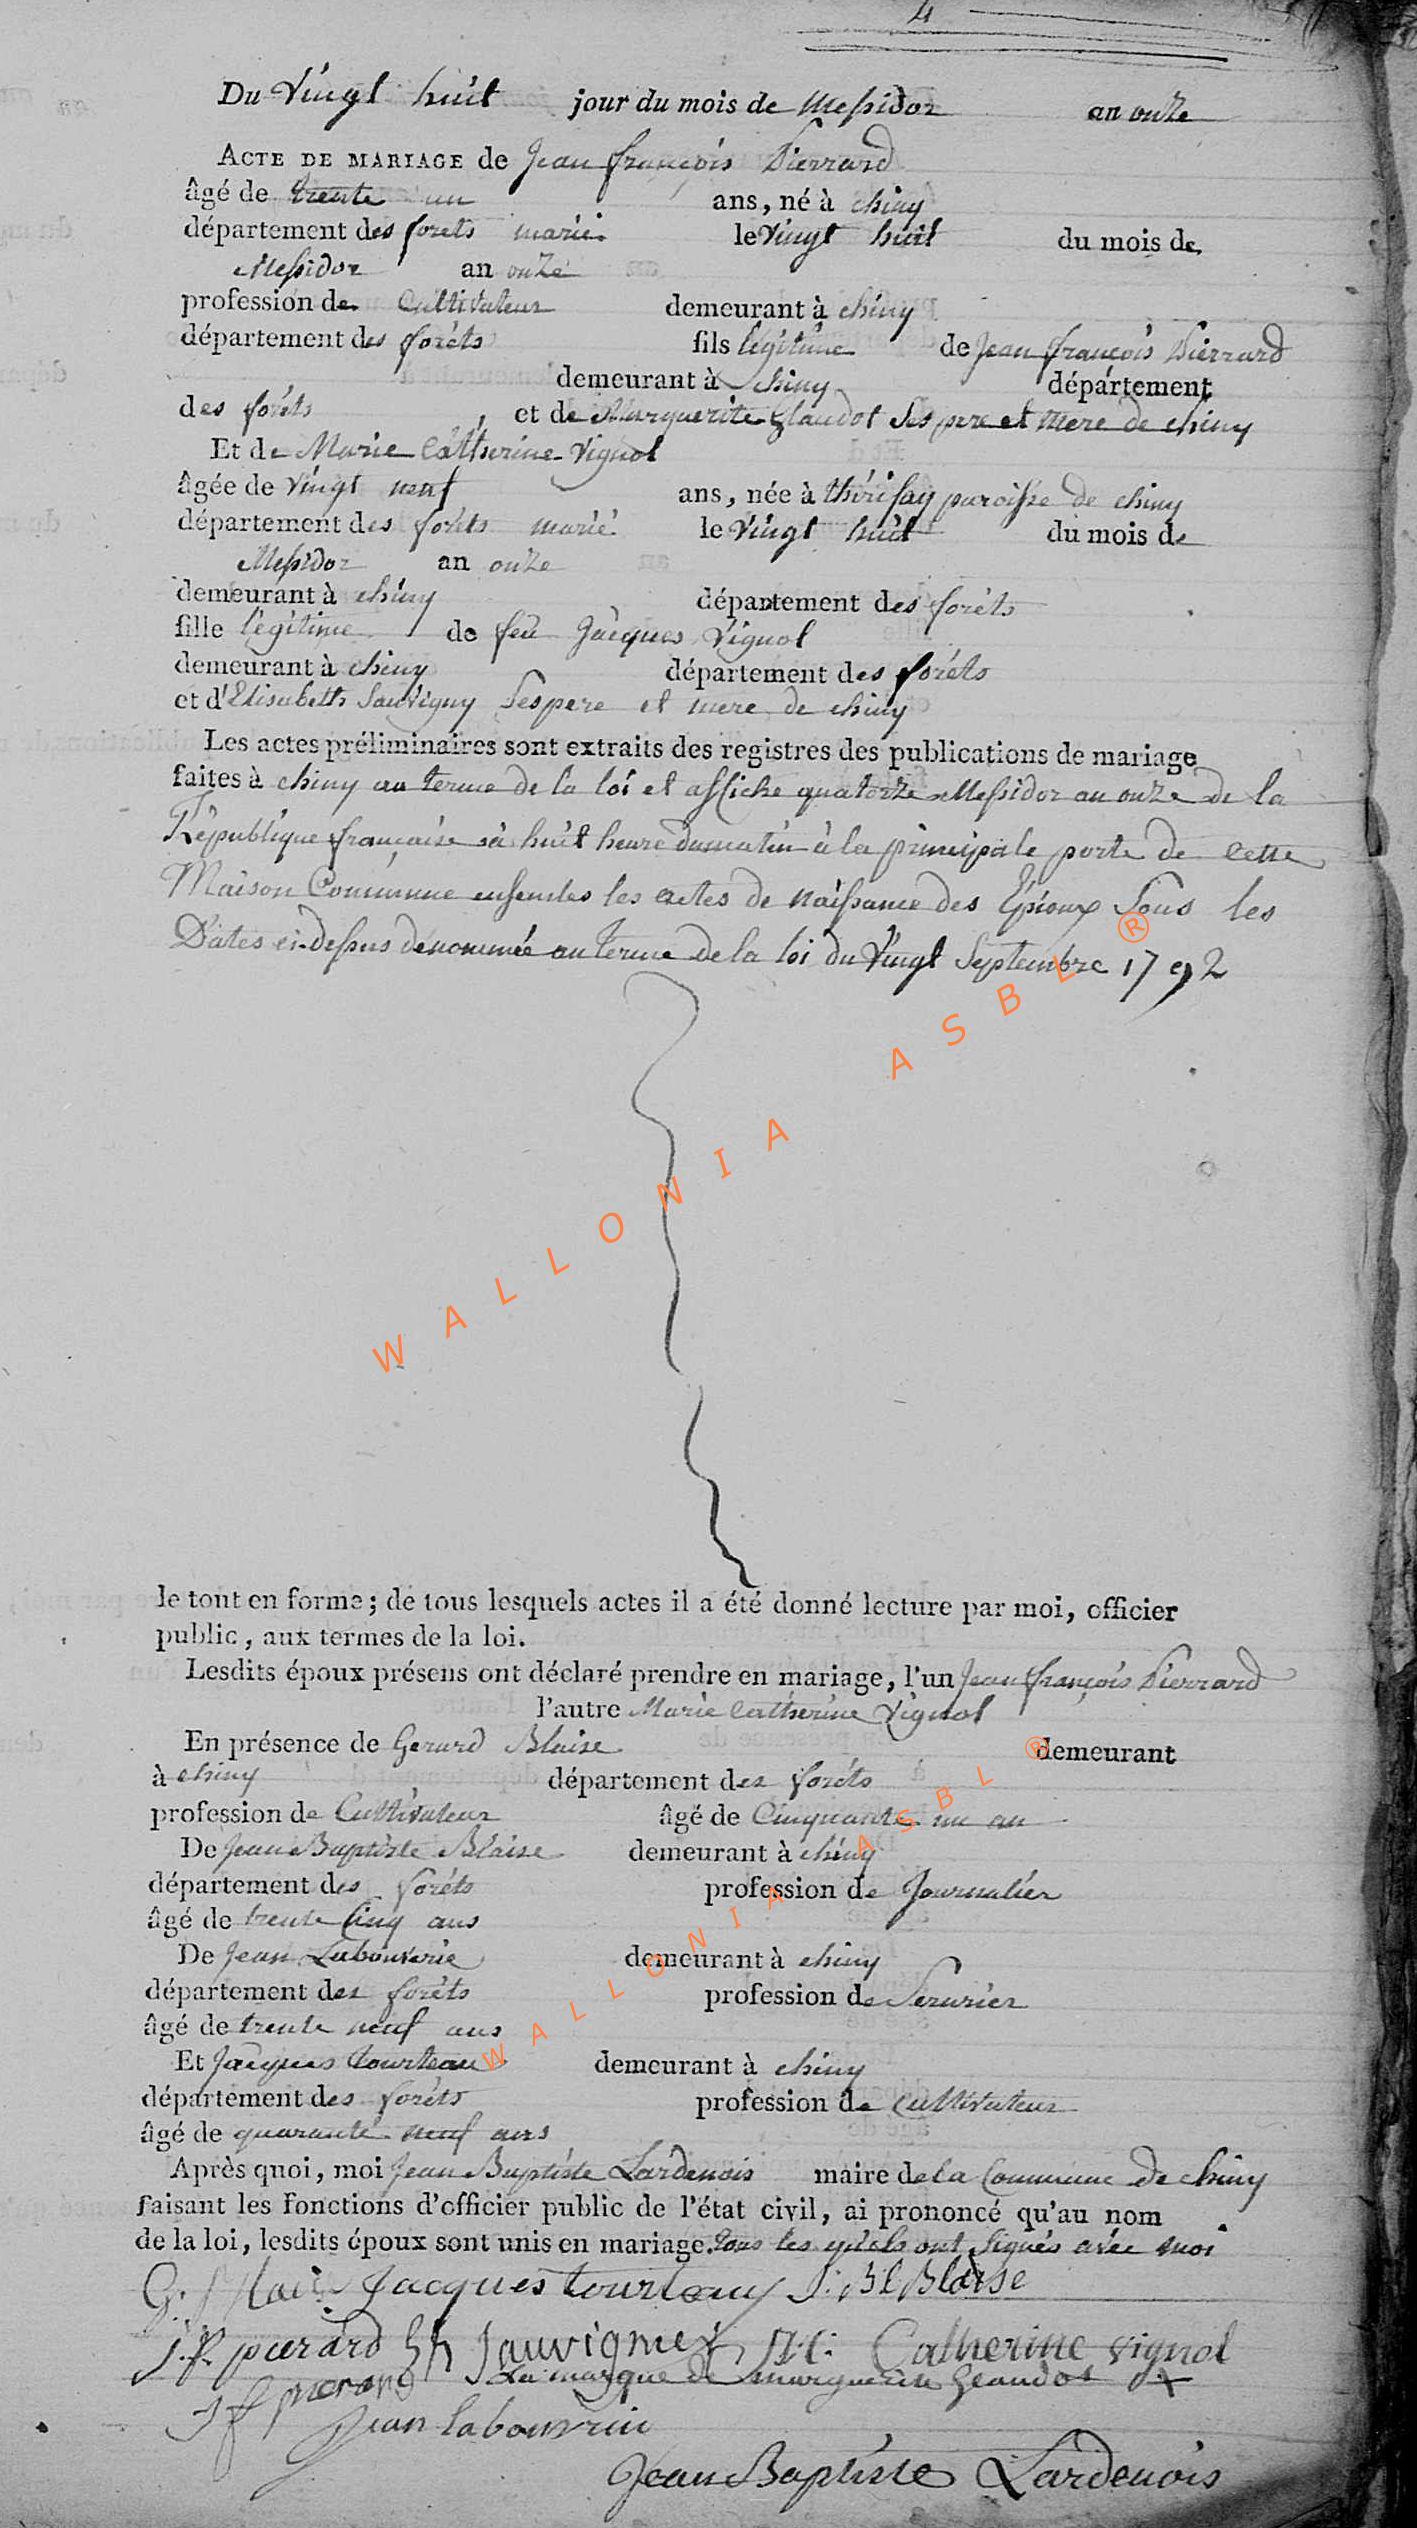 4
Du Vingt huit jour du mois de Messidor an onze
ACTE DE MARIAGE de Jean françois Pierrard
âgé de trente un ans, né à chiny
département des forets marié le Vingt huit du mois de
Messidor an onze
profession de Cultivateur demeurant à chiny
département des foréts fils légitime de Jean françois Pierrard
demeurant à chiny département
des foréts, et de Marguerite glaudot Ses pere et mere de chiny
Et de Marie Catherine Vignol
âgée de Vingt neuf ans, née à thérisay paroisse de chiny
département des foréts marié le Vingt huit du mois de
Messidor an onze
demeurant à chiny département des foréts
fille légitime de feu Jacques Vignol
demeurant à chiny département des foréts
et d'Elisabeth Sauvigny Ses pere et mere de chiny
Les actes préliminaires sont extraits des registres des publications de mariage
faites à chiny au terme de la loi et affiche quatorze Messidor an onze de la
République française à huit heure du matin à la principale porte de cette
Maison Commune ensembles les actes de naissance des Epioux Sous les
Dates ci-dessus denommée au terme de la loi du Vingt Septembre 1792
WALLONIA ASBL ®
le tout en forme ; de tous lesquels actes il a été donné lecture par moi, officier
public, aux termes de la loi.
Lesdits époux présens ont déclaré prendre en mariage, l'un Jean françois Pierrard
l'autre Marie Catherine Vignol
En présence de Gerard Blaise demeurant
à chiny département des foréts
profession de Cultivateur âgé de Cinquante un an
De Jean Baptiste Blaise demeurant à chiny
département des foréts profession de Journalier
âgé de trente Cinq ans
De Jean Labouverie demeurant à chiny
département des foréts profession de Serurier
âgé de trente neuf ans
Et Jacques tourteau demeurant à chiny
département des foréts profession de Cultivateur
âgé de quarante neuf ans
WALLONIA ASBL ®
Après quoi, moi Jean Baptiste Lardenois maire de la Commune de chiny
faisant les fonctions d'officier public de l'état civil, ai prononcé qu'au nom
de la loi, lesdits époux sont unis en mariage. tous les quels ont Signés avec moi
G: Jacques tourteau J: Bt Blaise
J.f. pierard Sauvigney M: Catherine vignol
La marque de marguerite Glaudot X
J f pierard
Jean labouverie
Jean Baptiste Lardenois